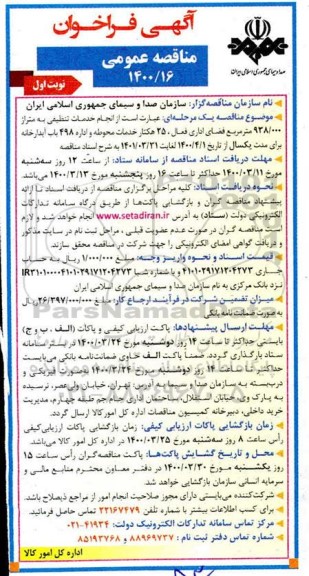 آگهی فراخوان
مناقصه عمومی
۱۴۰۰/۱۶
صدا و سیمای جمهوری اسلامی ایران
نوبت اول
نام سازمان مناقصه‌گزار: سازمان صدا و سیمای جمهوری اسلامی ایران
موضوع مناقصه یک مرحله‌ای: عبارت است از انجام خدمات تنظیفی به متراژ
۹۳۸/۰۰۰ مترمربع فضای اداری فعال، ۲۵ هکتار خدمات محوطه و اداره ۴۹۸ باب آبدارخانه
برای مدت یکسال از تاریخ ۱۴۰۰/۴/۱ لغایت ۱۴۰۱/۰۳/۳۱ به شرح اسناد مناقصه
مهلت دریافت اسناد مناقصه از سامانه ستاد: از ساعت ۱۲ روز سه‌شنبه
مورخ ۱۴۰۰/۰۳/۱۱ حداکثر تا ساعت ۱۶ روز پنجشنبه مورخ ۱۴۰۰/۳/۱۳ می‌باشد.
نحوه دریافت اسناد: کلیه مراحل برگزاری مناقصه از دریافت اسناد تا ارائه
پیشنهاد مناقصه گران و بازگشایی پاکت‌ها از طریق درگاه سامانه تدارکات
الکترونیکی دولت (ستاد) به آدرس www.setadiran.ir انجام خواهد شد و لازم
است مناقصه گران در صورت عدم عضویت قبلی، مراحل ثبت نام در سایت مذکور
و دریافت گواهی امضای الکترونیکی را جهت شرکت در مناقصه محقق سازند.
قیمت اسناد و نحوه واریز وجه: مبلغ ۱/۰۰۰/۰۰۰ ریال به حساب
جاری ۴۱۰۱۰۲۹۱۷۱۲۰۴۲۷۳ و یا شماره شبا
نزد بانک مرکزی به نام سازمان صدا و سیمای جمهوری اسلامی ایران
میزان تضمین شرکت در فرآیند ارجاع کار: مبلغ ۲۶/۳۹۷/۰۰۰/۰۰۰ ریال
به صورت ضمانت نامه بانکی
مهلت ارسال پیشنهادها: پاکت ارزیابی کیفی و پاکات (الف - ب و ج)
بایستی حداکثر تا ساعت ۱۴ روز دوشنبه مورخ ۱۴۰۰/۰۳/۲۴ در بستر سامانه
ستاد بارگذاری گردد. ضمناً پاکت الف حاوی ضمانت‌نامه بانکی می‌بایست
حداکثر تا ساعت ۱۴ روز دوشنبه مورخ ۱۴۰۰/۳/۲۴ بصورت فیزیکی و
دربسته به سازمان صدا و سیما به آدرس: تهران، خیابان ولی عصر، نرسیده
به پارک وی، خیابان استقلال، ساختمان اداری جام جم طبقه چهارم، مدیریت
خرید داخلی، دبیرخانه کمیسیون مناقصات اداره کل امور کالا ارسال گردد.
زمان بازگشایی پاکات ارزیابی کیفی: زمان بازگشایی پاکات ارزیابی کیفی
رأس ساعت ۸ روز سه‌شنبه مورخ ۱۴۰۰/۰۳/۲۵ در اداره کل امور کالا می‌باشد.
محل و تاریخ گشایش پاکت‌ها: پاکت مناقصه‌گران رأس ساعت ۱۵
روز یکشنبه مورخ ۱۴۰۰/۰۳/۳۰ در دفتر معاون محترم منابع مالی و
سرمایه انسانی سازمان بازگشایی خواهد شد.
شرکت‌کننده می‌بایستی دارای مجوز صلاحیت انجام امور از مراجع ذیصلاح باشد.
برای کسب اطلاعات بیشتر با شماره تلفن ۲۲۱۶۷۴۷۹ تماس حاصل فرمائید.
مرکز تماس سامانه تدارکات الکترونیک دولت: ۴۱۹۳۴-۰۲۱
شماره تماس دفتر ثبت نام: ۸۸۹۶۹۷۳۷ و ۸۵۱۹۳۷۶۸
اداره کل امور کالا